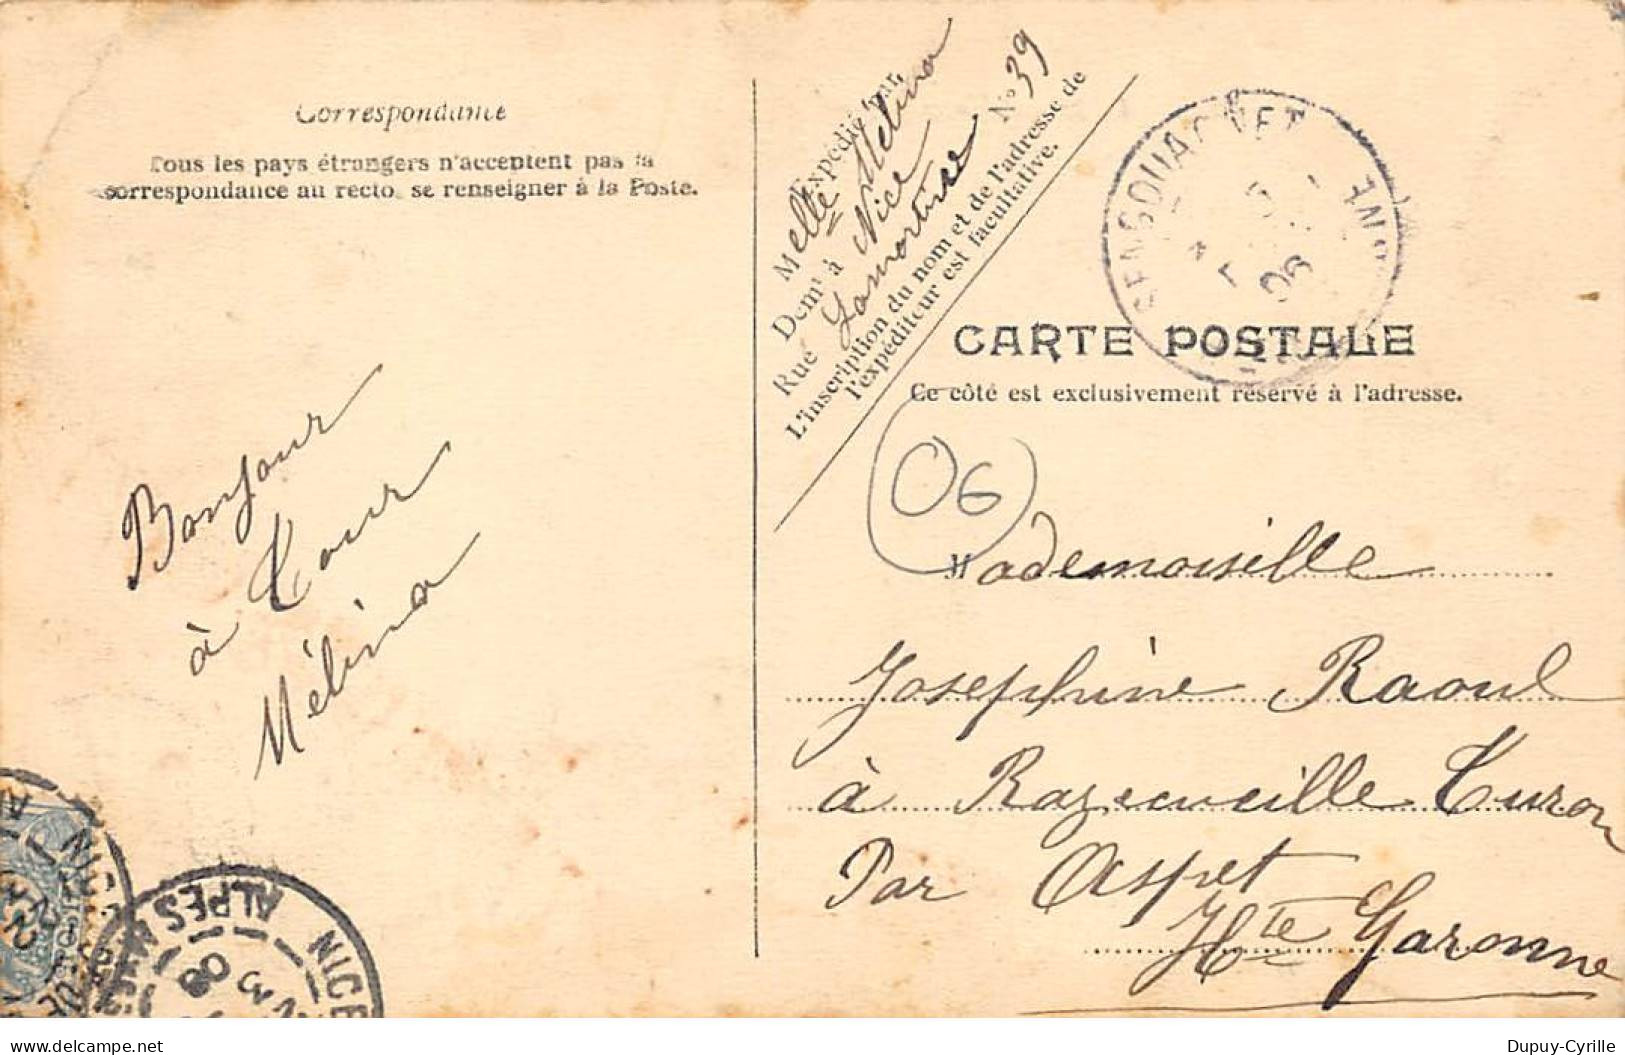 Correspondance
Tous les pays étrangers n'acceptent pas la
correspondance au recto, se renseigner à la Poste.
Bonjour
à Tour
Mélina
Expédié par
Melle Mélina
Demt à Nice
Rue Lamartine No 39
L'inscription du nom et de l'adresse de
l'expéditeur est facultative.
SENGOUAGNET
06
CARTE POSTALE
Ce côté est exclusivement réservé à l'adresse.
06
Mademoiselle
Josephine Raoul
à Razecueille Turon
Par Aspet
Hte Garonne
NICE
ALPES M
delcampe.net
Dupuy-Cyrille